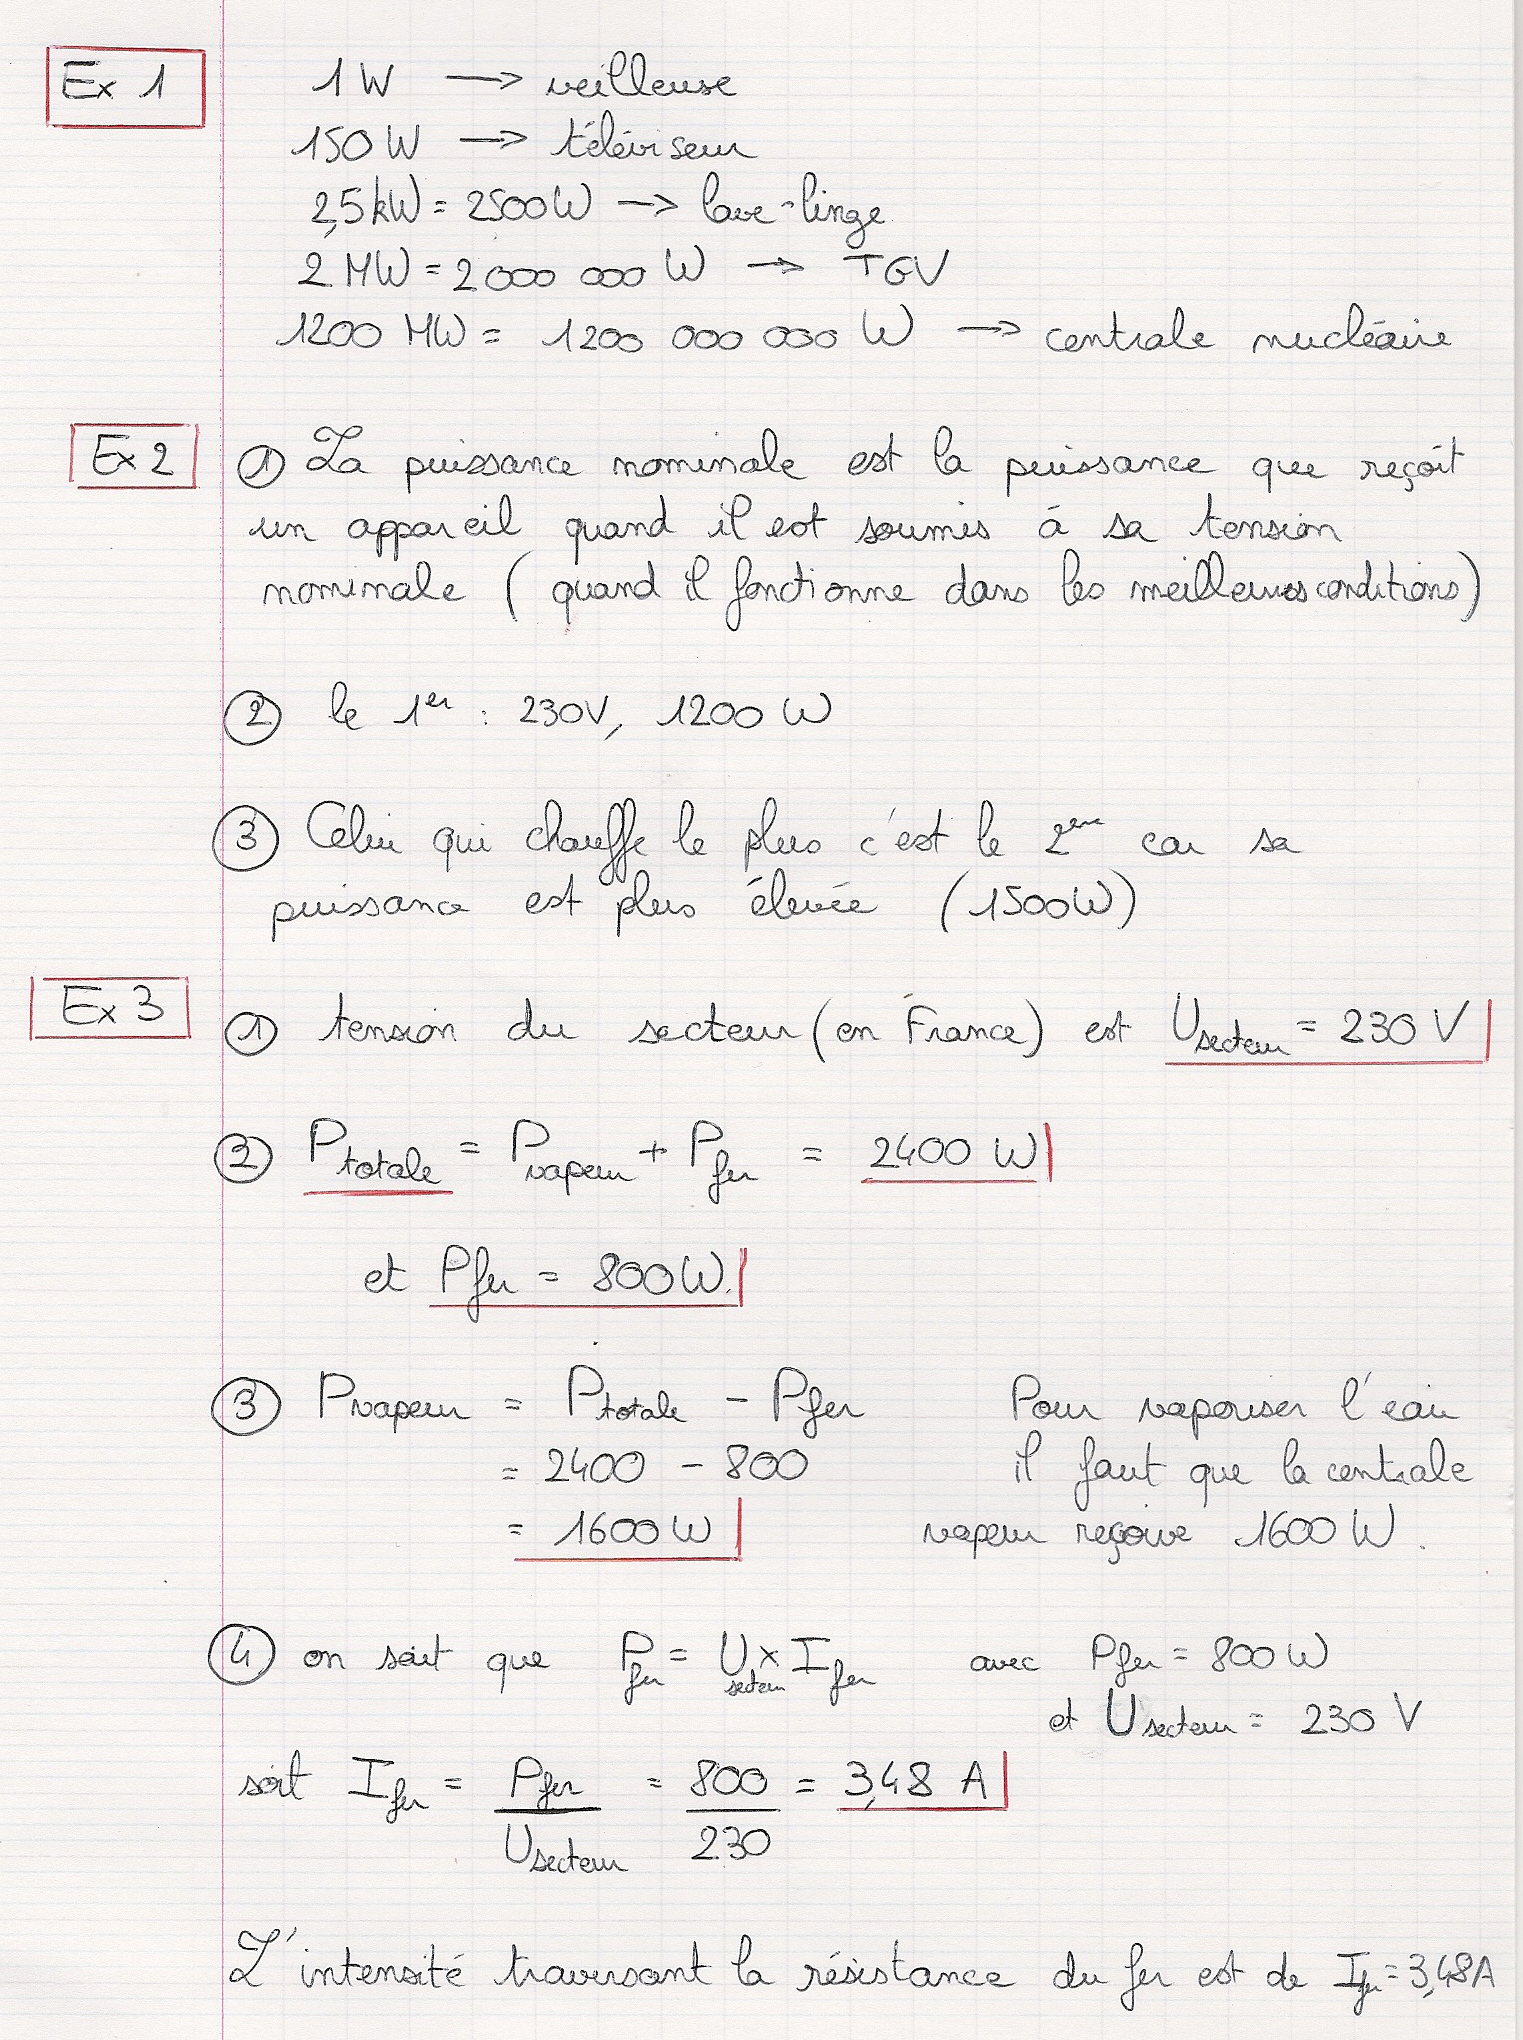 Ex 1
1 W → veilleuse
150 W → téléviseur
2,5 kW = 2500 W → lave-linge
2 MW = 2 000 000 W → TGV
1200 MW = 1200 000 000 W → centrale nucléaire
Ex 2
① La puissance nominale est la puissance que reçoit
un appareil quand il est soumis à sa tension
nominale (quand il fonctionne dans les meilleures conditions)
② le 1er : 230V, 1200 W
③ Celui qui chauffe le plus c'est le 2ème car sa
puissance est plus élevée (1500W)
Ex 3
① tension du secteur (en France) est Usecteur = 230 V
② Ptotale = Pvapeur + Pfer = 2400 W
et Pfer = 800 W.
③ Pvapeur = Ptotale - Pfer Pour vaporiser l'eau
= 2400 - 800 il faut que la centrale
= 1600 W vapeur reçoive 1600 W.
④ on sait que Pfer = Usecteur x Ifer avec Pfer = 800 W
et Usecteur = 230 V
soit Ifer = Pfer / Usecteur = 800 / 230 = 3,48 A
L'intensité traversant la résistance du fer est de Ifer = 3,48A